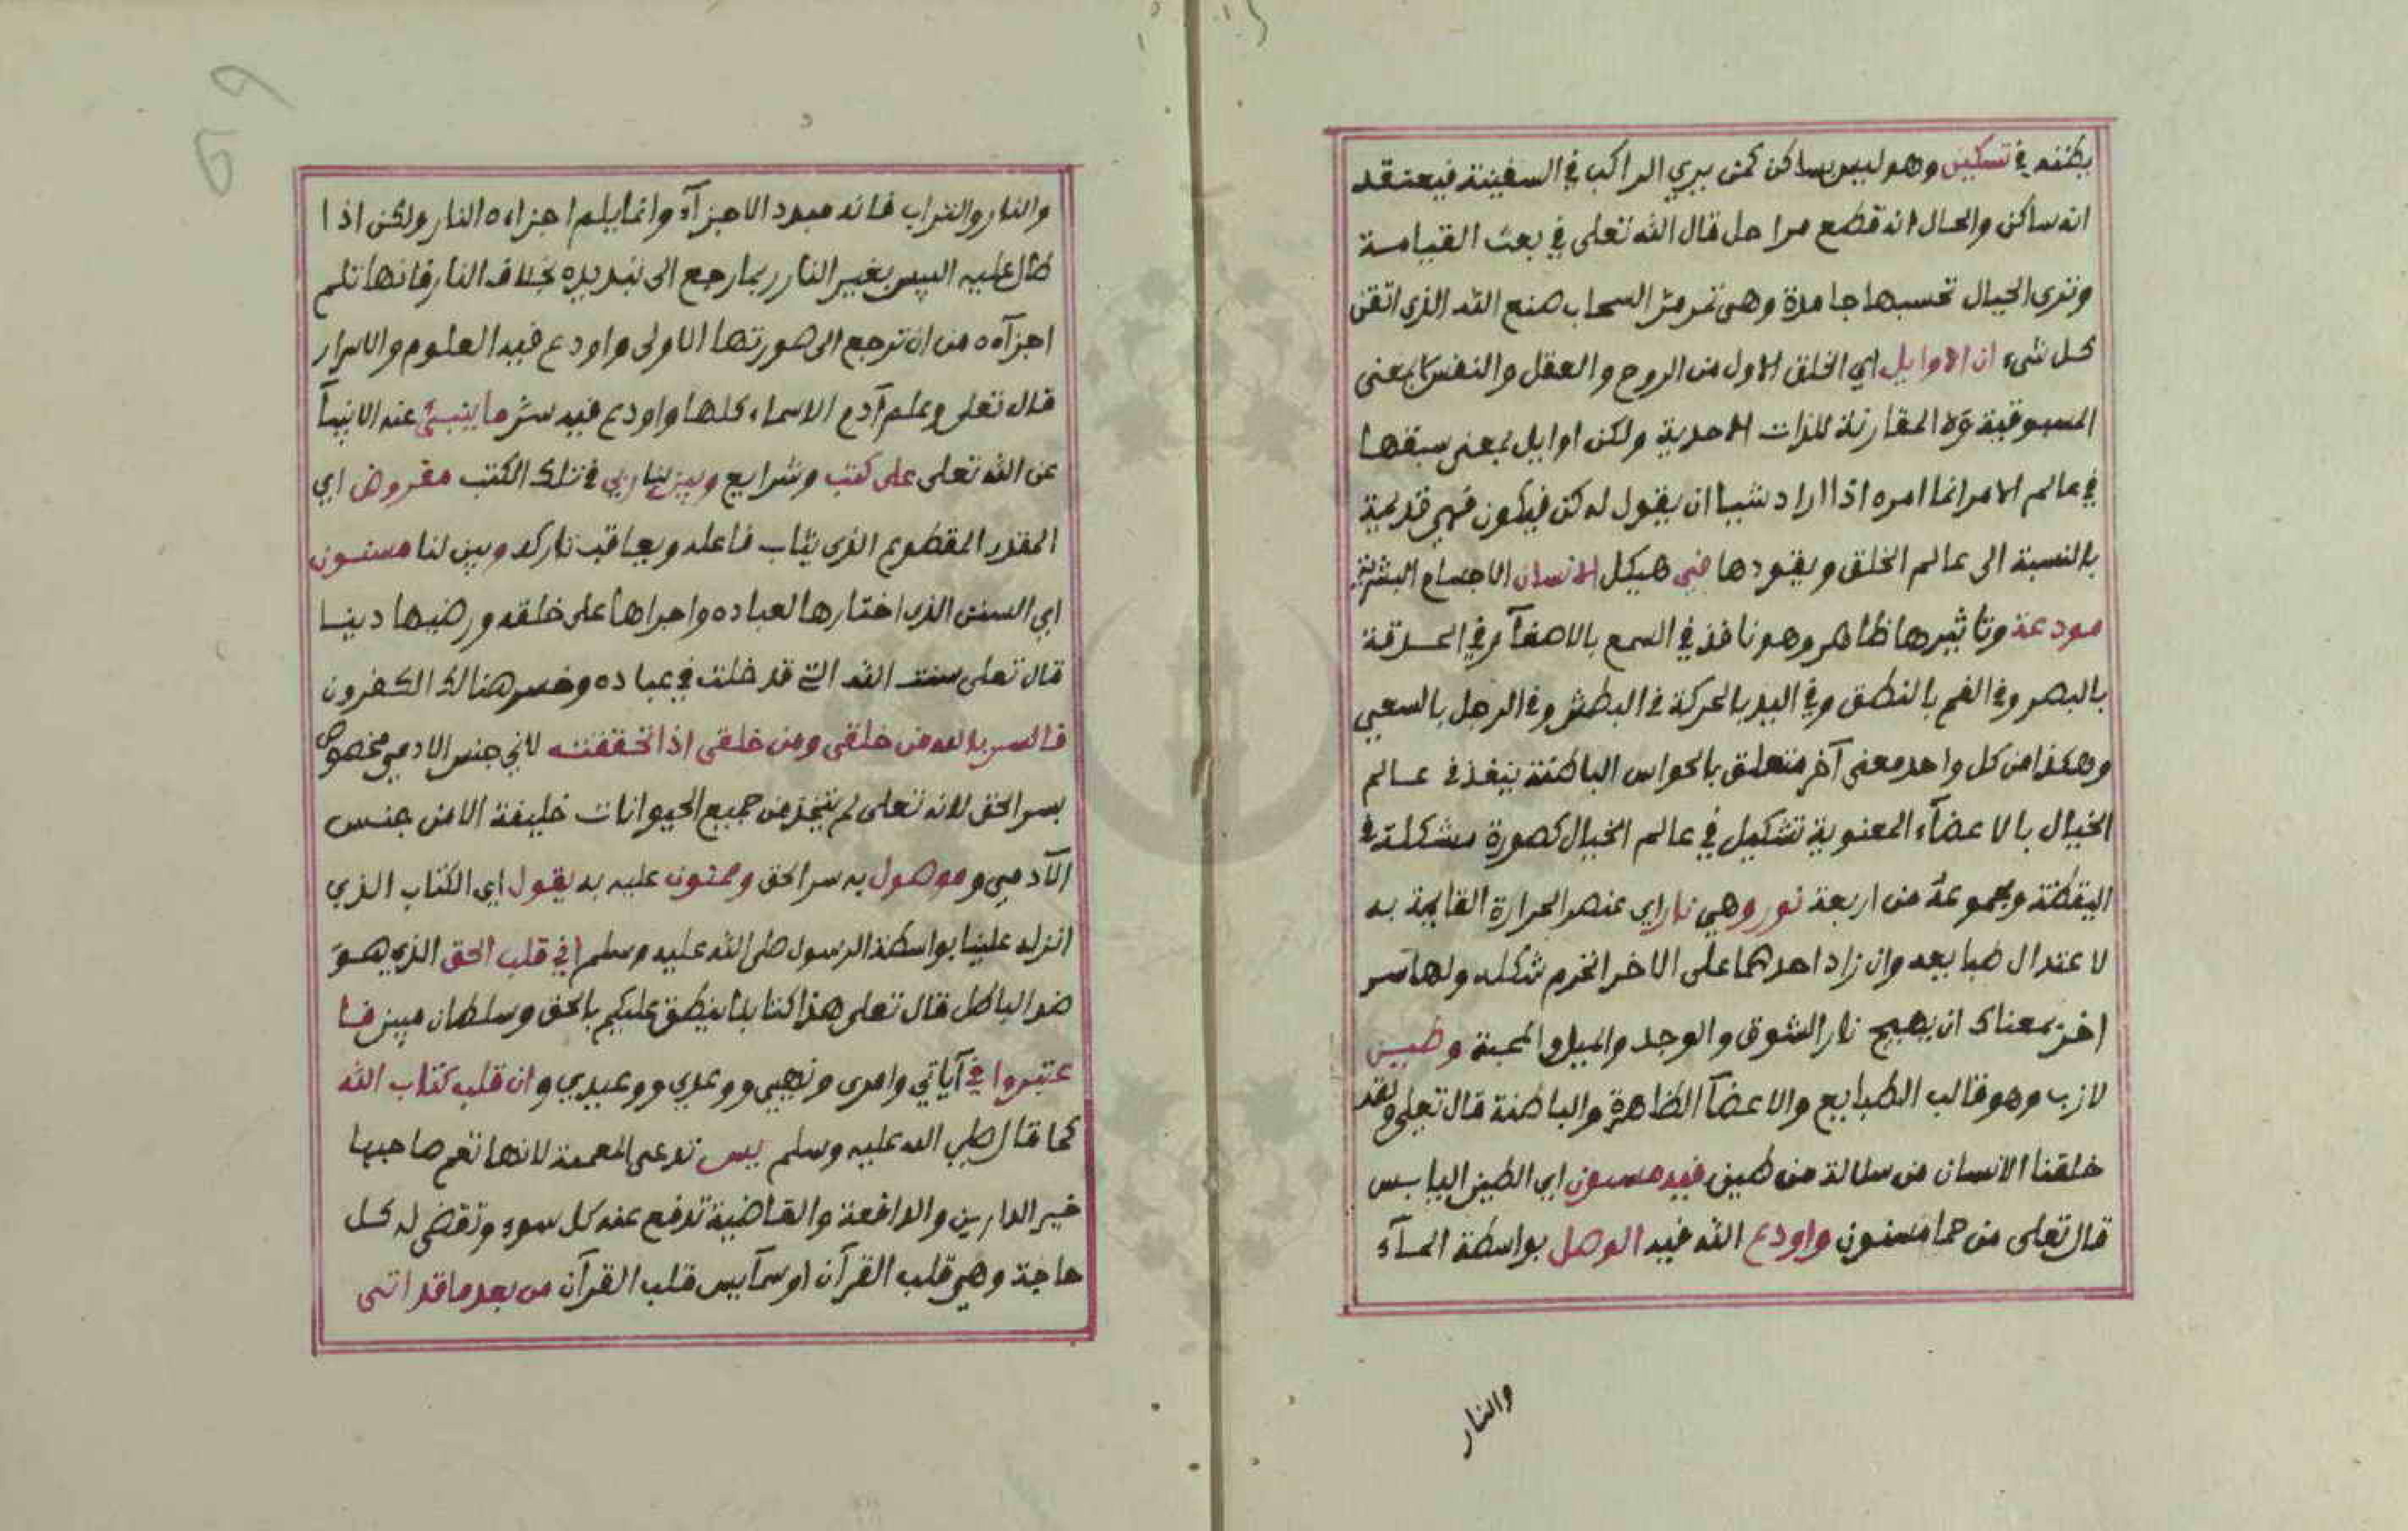 يظنه في تسكين وهو ليس بساكن كمن يري الراكب في السفينة فيعتقد
انه ساكن والحال انه قطع مراحل قال الله تعلى في بعث القيامة
وترى الجبال تحسبها جامدة وهى تمر مر السحاب صنع الله الذى اتقن
كل شىء ان الاوايل اي الخلق الاول من الروح والعقل والنفس لا بمعنى
المسبوقية ولا المقارنة للذات الاحدية ولكن اوايل بمعنى سبقها
في عالم الامر انما امره اذا اراد شيا ان يقول له كن فيكون فهي قديمة
بالنسبة الى عالم الخلق ويقودها في هيكل الانسان الاجسام البشرية
مودعة وتاثيرها ظاهر وهو نافذ في السمع بالاصغآ وفي الحدقة
بالبصر وفي الفم بالنطق وفي اليد بالحركة في البطش وفي الرجل بالسعي
وهكذا من كل واحد معنى آخر متعلق بالحواس الباطنة ينفذ في عالم
الخيال بالاعضآء المعنوية تشكيل في عالم الخيال كصورة مشكلة في
اليقظة ومجموعة من اربعة نور وهي نار اي عنصر الحرارة القايمة به
لاعتدال طبايعه وان زاد احدهما على الاخر انخرم شكله ولها سر
اخر بمعناك ان يهيج نار الشوق والوجد والميل والمحبة وطين
لازب وهو قالب الطبايع والاعضآ الظاهرة والباطنة قال تعلى ولقد
خلقنا الانسان من سلالة من طين فيه مسنون اي الطين اليابس
قال تعلى من حما مسنون واودع الله فيه الوصل بواسطة المآء
والنار
والنار والتراب فانه مبدد الاجزآء وانما يلم اجزاءه النار ولكن اذا
طال عليه اليبس بغير النار ربما رجع الى تبديده بخلاف النار فانها تلم
اجزآءه من ان ترجع الى صورتها الاولى واودع فيه العلوم والاسرار
قال تعلى وعلم آدم الاسماء كلها واودع فيه سر ما ينبئ عنه الانبيآ
عن الله تعلى على كتب وشرايع وبين لنا ربي في تلك الكتب مفروض اي
المقدر المقطوع الذى يثاب فاعله ويعاقب تاركه وبين لنا مسنون
اي السنن الذى اختارها لعباده واجراها على خلقه ورضيها دينا
قال تعلى سنت الله التي قد خلت في عباده وخسر هنالك الكفرون
فالسر بالله من خلقى ومن خلقى اذا تحققته لاني جنس الادمي مخصوص
بسر الحق لانه تعلى لم يتخذ من جميع الحيوانات خليفة الا من جنس
الآدمي وموصول به سر الحق وممنون عليه به يقول اي الكتاب الذي
انزله علينا بواسطة الرسول صلى الله عليه وسلم في قلب الحق الذي هو
ضد الباطل قال تعلى هذا كتابنا ينطق عليكم بالحق وسلطان مبين فا
عتبروا في آياتي وامرى ونهيي ووعدي ووعيدي وان قلب كتاب الله
كما قال صلي الله عليه وسلم يس تدعى المعمة لانها تعم صاحبها
خير الدارين والدافعة والقاضية تدفع عنه كل سوء وتقضى له كل
حاجة وهي قلب القرآن او سمآ يس قلب القرآن من بعد ما قد اتى